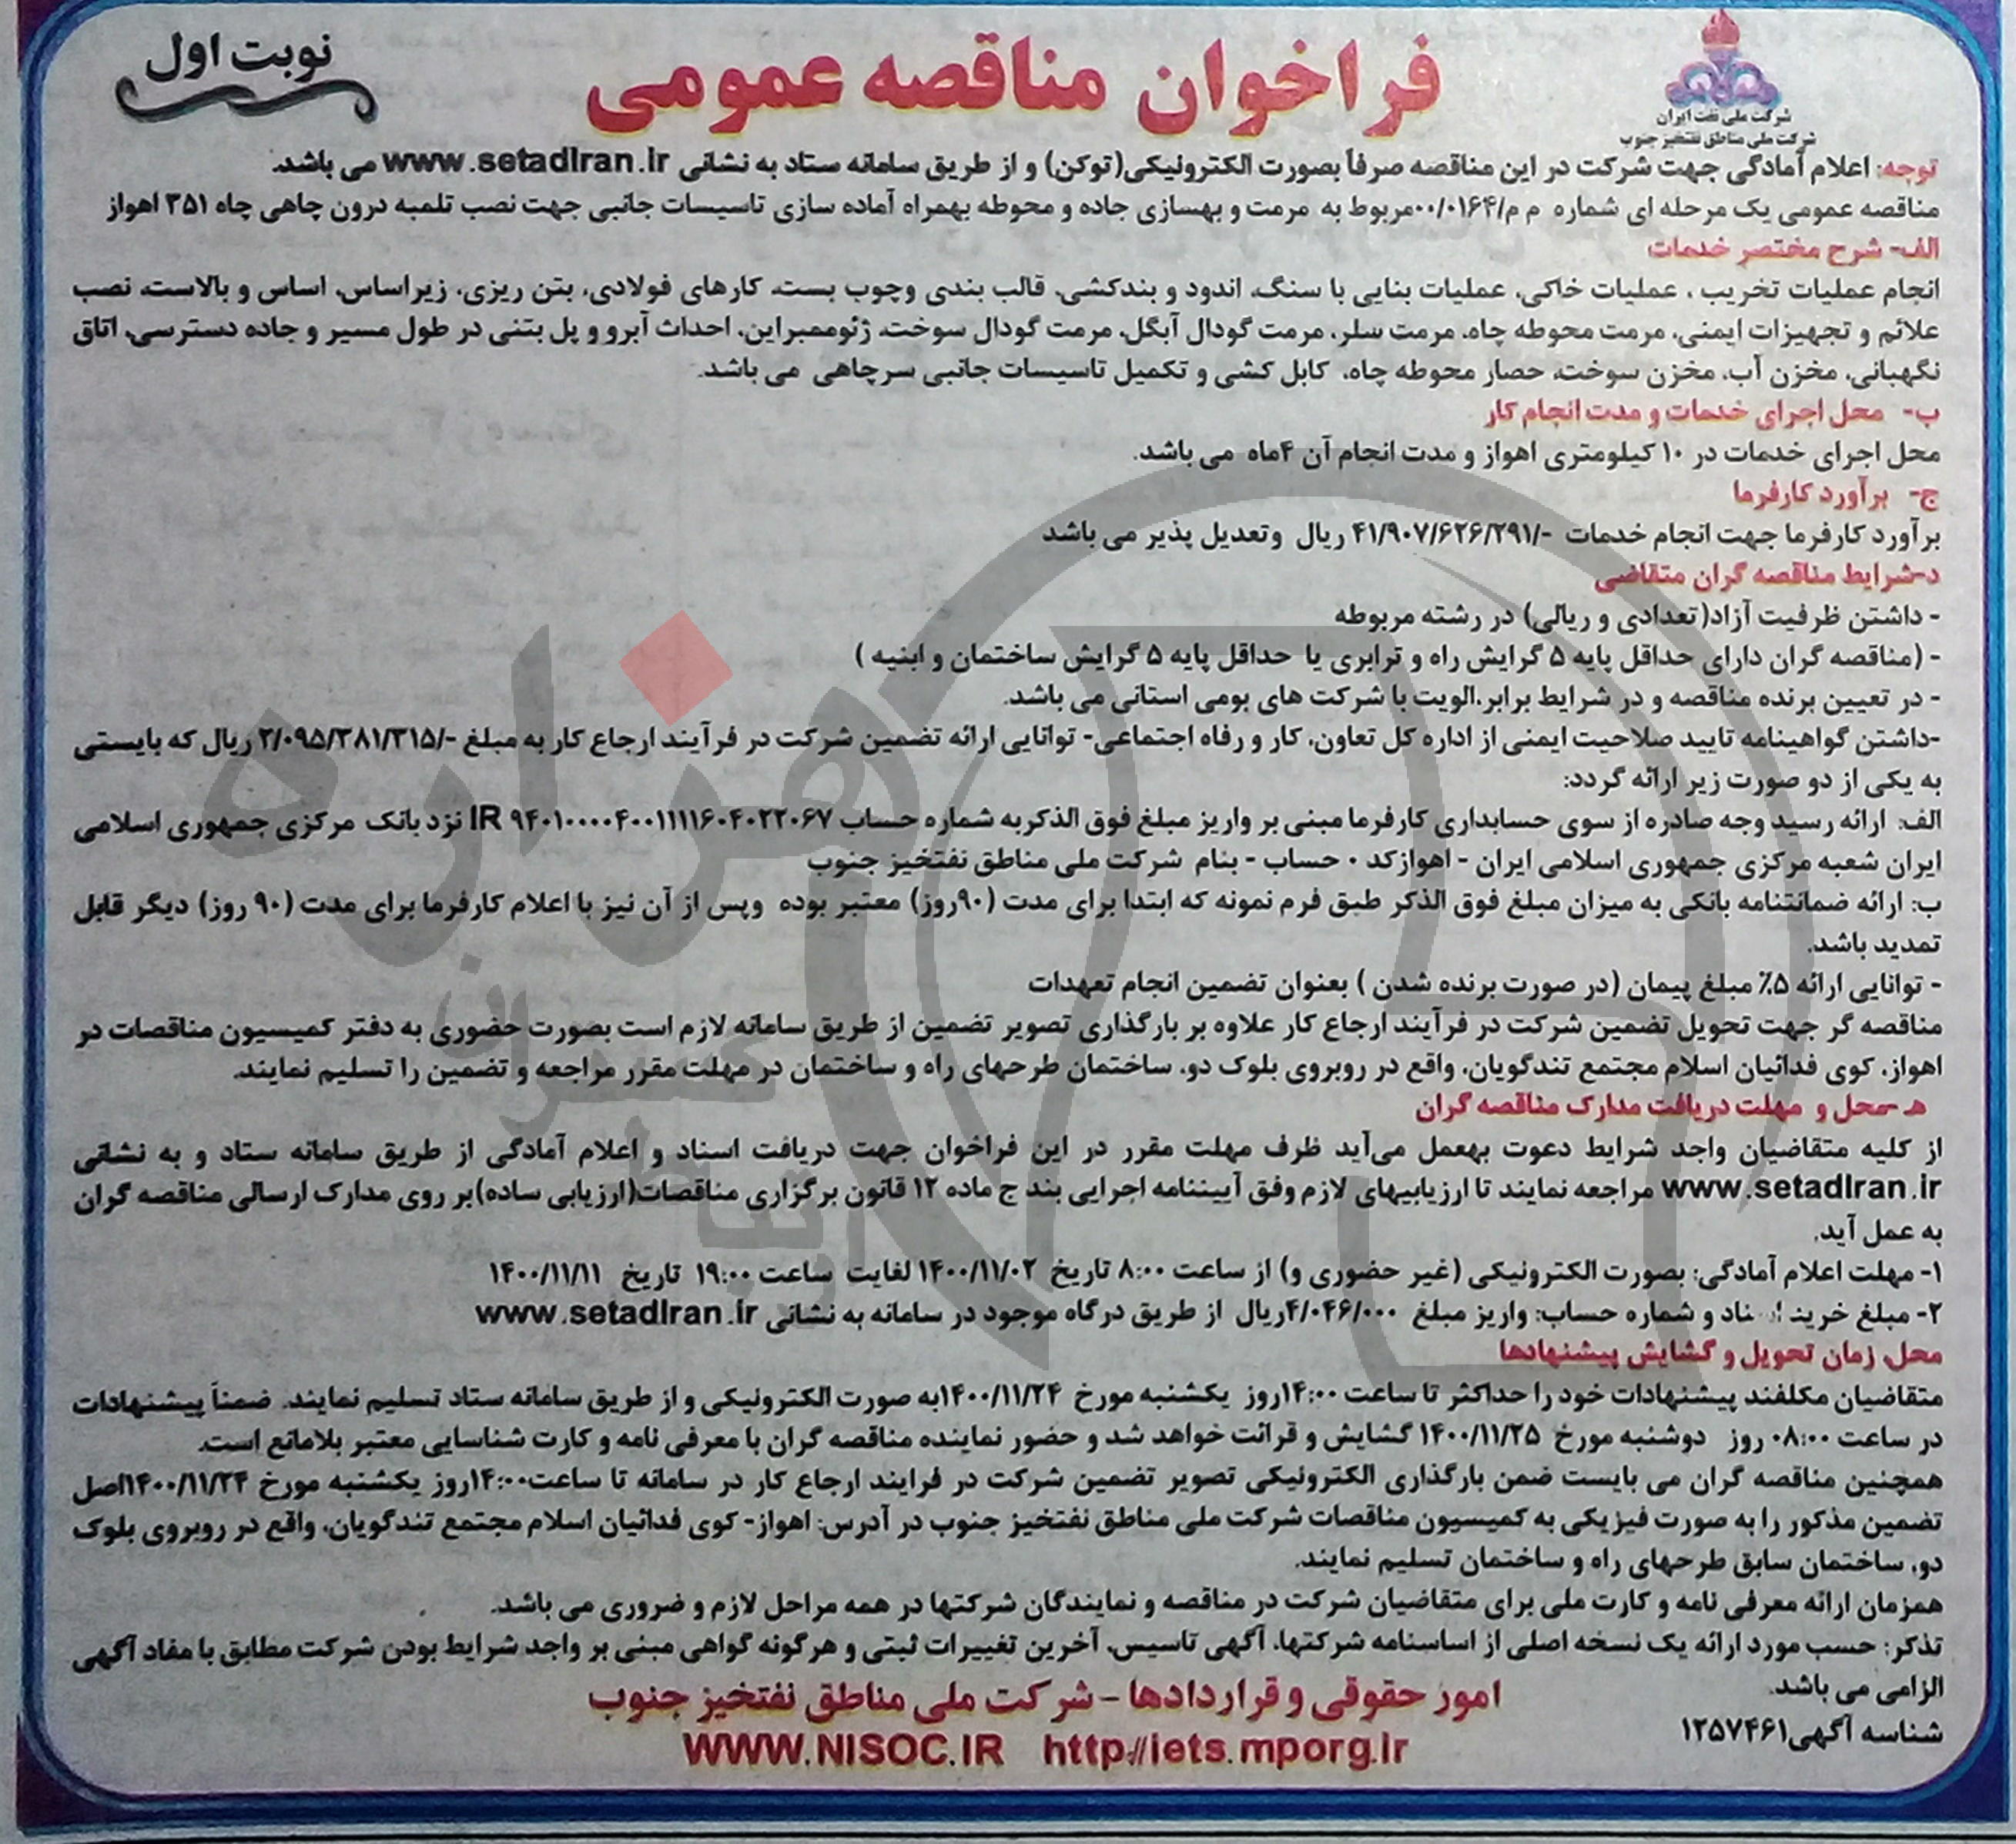 نوبت اول
فراخوان مناقصه عمومی
شرکت ملی نفت ایران
شرکت ملی مناطق نفتخیز جنوب
توجه: اعلام آمادگی جهت شرکت در این مناقصه صرفاً بصورت الکترونیکی(توکن) و از طریق سامانه ستاد به نشانی www.setadIran.ir می باشد.
مناقصه عمومی یک مرحله ای شماره م م/۰۰/۰۱۶۴مربوط به مرمت و بهسازی جاده و محوطه بهمراه آماده سازی تاسیسات جانبی جهت نصب تلمبه درون چاهی چاه ۳۵۱ اهواز
الف- شرح مختصر خدمات
انجام عملیات تخریب ، عملیات خاکی، عملیات بنایی با سنگ، اندود و بندکشی، قالب بندی وچوب بست، کارهای فولادی، بتن ریزی، زیراساس، اساس و بالاست، نصب
علائم و تجهیزات ایمنی، مرمت محوطه چاه، مرمت سلر، مرمت گودال آبگل، مرمت گودال سوخت، ژئوممبراین، احداث آبرو و پل بتنی در طول مسیر و جاده دسترسی، اتاق
نگهبانی، مخزن آب، مخزن سوخت، حصار محوطه چاه، کابل کشی و تکمیل تاسیسات جانبی سرچاهی می باشد.
ب- محل اجرای خدمات و مدت انجام کار
محل اجرای خدمات در ۱۰ کیلومتری اهواز و مدت انجام آن ۴ماه می باشد.
ج- برآورد کارفرما
برآورد کارفرما جهت انجام خدمات -/۴۱/۹۰۷/۶۲۶/۲۹۱ ریال وتعدیل پذیر می باشد
د-شرایط مناقصه گران متقاضی
- داشتن ظرفیت آزاد(تعدادی و ریالی) در رشته مربوطه
- (مناقصه گران دارای حداقل پایه ۵ گرایش راه و ترابری یا حداقل پایه ۵ گرایش ساختمان و ابنیه )
- در تعیین برنده مناقصه و در شرایط برابر،الویت با شرکت های بومی استانی می باشد.
-داشتن گواهینامه تایید صلاحیت ایمنی از اداره کل تعاون، کار و رفاه اجتماعی- توانایی ارائه تضمین شرکت در فرآیند ارجاع کار به مبلغ -/۲/۰۹۵/۳۸۱/۳۱۵ ریال که بایستی
به یکی از دو صورت زیر ارائه گردد:
الف: ارائه رسید وجه صادره از سوی حسابداری کارفرما مبنی بر واریز مبلغ فوق الذکربه شماره حساب IR ۹۴۰۱۰۰۰۰۴۰۰۱۱۱۱۶۰۴۰۲۲۰۶۷ نزد بانک مرکزی جمهوری اسلامی
ایران شعبه مرکزی جمهوری اسلامی ایران - اهوازکد ۰ حساب - بنام شرکت ملی مناطق نفتخیز جنوب
ب: ارائه ضمانتنامه بانکی به میزان مبلغ فوق الذکر طبق فرم نمونه که ابتدا برای مدت (۹۰روز) معتبر بوده وپس از آن نیز با اعلام کارفرما برای مدت (۹۰ روز) دیگر قابل
تمدید باشد.
- توانایی ارائه ۵٪ مبلغ پیمان (در صورت برنده شدن ) بعنوان تضمین انجام تعهدات
مناقصه گر جهت تحویل تضمین شرکت در فرآیند ارجاع کار علاوه بر بارگذاری تصویر تضمین از طریق سامانه لازم است بصورت حضوری به دفتر کمیسیون مناقصات در
اهواز، کوی فدائیان اسلام مجتمع تندگویان، واقع در روبروی بلوک دو، ساختمان طرحهای راه و ساختمان در مهلت مقرر مراجعه و تضمین را تسلیم نمایند.
هـ -محل و مهلت دریافت مدارک مناقصه گران
از کلیه متقاضیان واجد شرایط دعوت بهعمل می‌آید ظرف مهلت مقرر در این فراخوان جهت دریافت اسناد و اعلام آمادگی از طریق سامانه ستاد و به نشانی
www.setadIran.ir مراجعه نمایند تا ارزیابیهای لازم وفق آییننامه اجرایی بند ج ماده ۱۲ قانون برگزاری مناقصات(ارزیابی ساده)بر روی مدارک ارسالی مناقصه گران
به عمل آید.
۱- مهلت اعلام آمادگی: بصورت الکترونیکی (غیر حضوری و) از ساعت ۸:۰۰ تاریخ ۱۴۰۰/۱۱/۰۲ لغایت ساعت ۱۹:۰۰ تاریخ ۱۴۰۰/۱۱/۱۱
۲- مبلغ خرید اسناد و شماره حساب: واریز مبلغ ۴/۰۴۶/۰۰۰ریال از طریق درگاه موجود در سامانه به نشانی www.setadIran.ir
محل، زمان تحویل و گشایش پیشنهادها
متقاضیان مکلفند پیشنهادات خود را حداکثر تا ساعت ۱۴:۰۰روز یکشنبه مورخ ۱۴۰۰/۱۱/۲۴به صورت الکترونیکی و از طریق سامانه ستاد تسلیم نمایند. ضمناً پیشنهادات
در ساعت ۰۸:۰۰ روز دوشنبه مورخ ۱۴۰۰/۱۱/۲۵ گشایش و قرائت خواهد شد و حضور نماینده مناقصه گران با معرفی نامه و کارت شناسایی معتبر بلامانع است.
همچنین مناقصه گران می بایست ضمن بارگذاری الکترونیکی تصویر تضمین شرکت در فرایند ارجاع کار در سامانه تا ساعت۱۴:۰۰روز یکشنبه مورخ ۱۴۰۰/۱۱/۲۴اصل
تضمین مذکور را به صورت فیزیکی به کمیسیون مناقصات شرکت ملی مناطق نفتخیز جنوب در آدرس: اهواز- کوی فدائیان اسلام مجتمع تندگویان، واقع در روبروی بلوک
دو، ساختمان سابق طرحهای راه و ساختمان تسلیم نمایند.
همزمان ارائه معرفی نامه و کارت ملی برای متقاضیان شرکت در مناقصه و نمایندگان شرکتها در همه مراحل لازم و ضروری می باشد.
تذکر: حسب مورد ارائه یک نسخه اصلی از اساسنامه شرکتها، آگهی تاسیس، آخرین تغییرات ثبتی و هرگونه گواهی مبنی بر واجد شرایط بودن شرکت مطابق با مفاد آگهی
الزامی می باشد.
شناسه آگهی۱۲۵۷۴۶۱
امور حقوقی و قراردادها – شرکت ملی مناطق نفتخیز جنوب
WWW.NISOC.IR http://iets.mporg.ir
هزاره